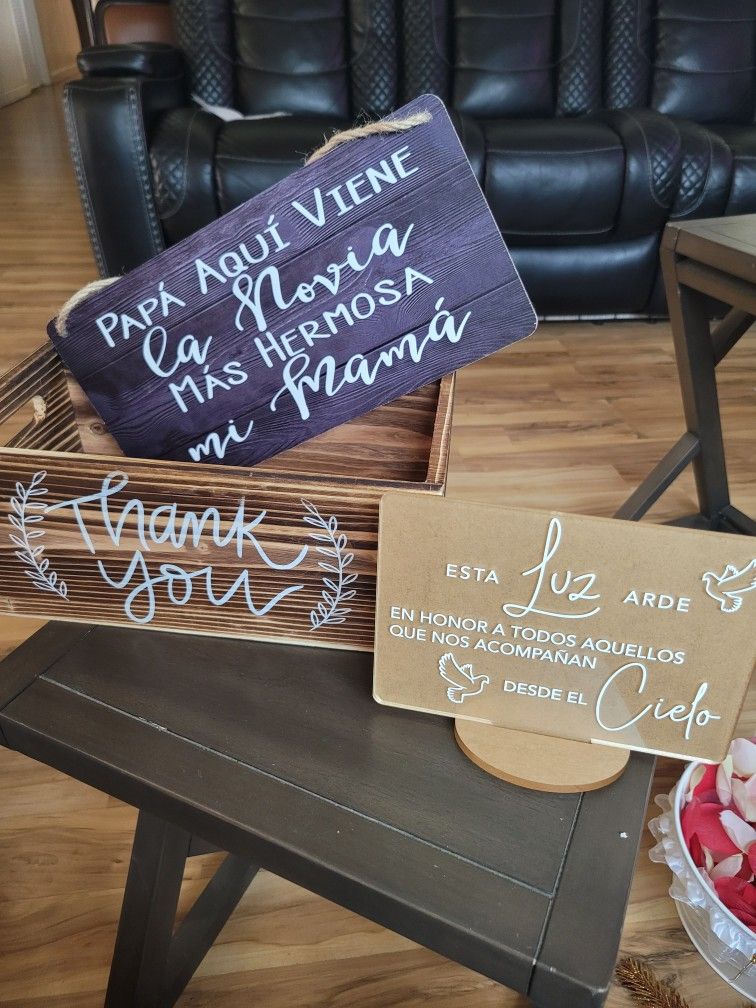 PAPÁ AQUÍ VIENE
la Novia
MÁS HERMOSA
mi Mamá
Thank
You
ESTA Luz ARDE
EN HONOR A TODOS AQUELLOS
QUE NOS ACOMPAÑAN
DESDE EL Cielo